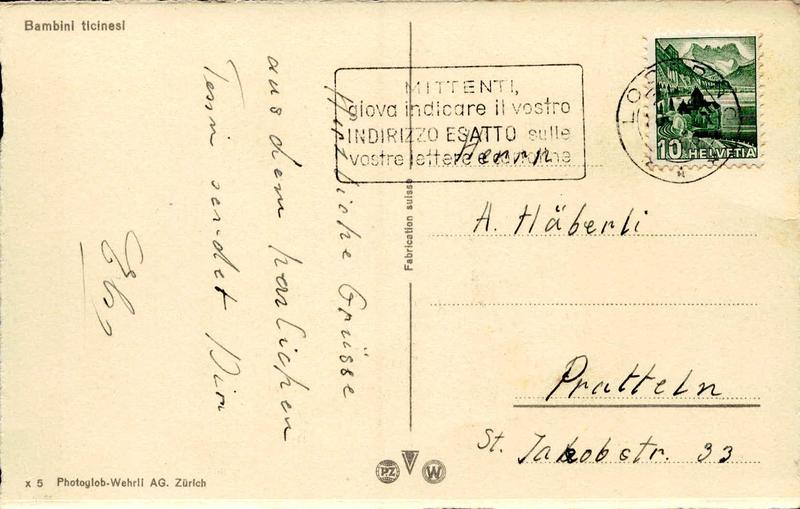 Bambini ticinesi
Herzliche Grüsse
aus dem herlichen
Tessin sendet Dir
MITTENTI,
giova indicare il vostro
INDIRIZZO ESATTO sulle
vostre lettere e cartoline
10 HELVETIA
Herrn
A. Häberli
Pratteln
St. Jakobstr. 33
Fabrication suisse
x 5 Photoglob-Wehrli AG. Zürich
PZ W